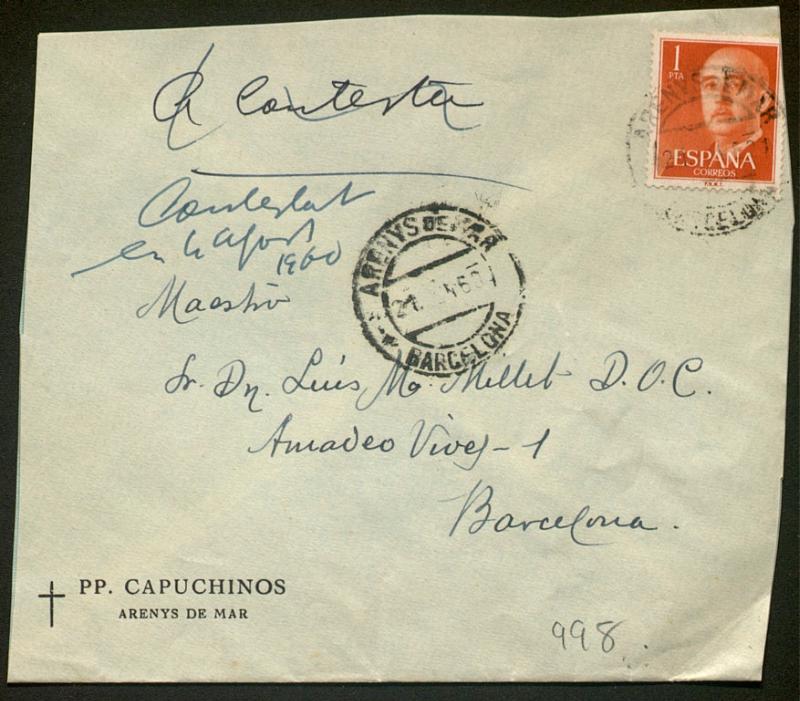 A Contestar
1 PTA
ESPAÑA
CORREOS
F.N.M.T.
ARENYS DE MAR
BARCELONA
Contestat
en 4 agost
1960
ARENYS DE MAR
BARCELONA
Maestro
Sr. Dn. Luís Mª Millet D.O.C.
Amadeo Vives-1
Barcelona.
PP. CAPUCHINOS
ARENYS DE MAR
998.